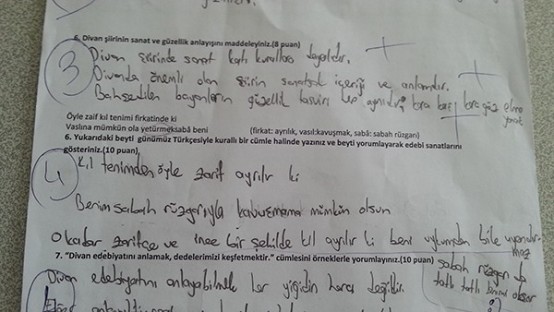 5. Divan şiirinin sanat ve güzellik anlayışını maddeleyiniz.(8 puan)
3
Divan şiirinde sanat katı kuralları değildir.
Divanda önemli olan şiirin sanatsal içeriği ve anlamıdır.
Bahsedilen bayanların güzellik tasviri hep aynıdır;
Öyle zaif kıl tenimi firkatinde ki
Vaslına mümkün ola yetürmeksabâ beni (firkat: ayrılık, vasıl:kavuşmak, sabâ: sabah rüzgarı)
6. Yukarıdaki beyti günümüz Türkçesiyle kurallı bir cümle halinde yazınız ve beyti yorumlayarak edebi sanatlarını
gösteriniz.(10 puan)
4
Kıl tenimden öyle zarif ayrılır ki
Benim sabah rüzgarıyla kavuşmama mümkün olsun
O kadar zarifçe ve ince bir şekilde kıl ayrılır ki beni uykumdan bile uyandırmaz
7. "Divan edebiyatını anlamak, dedelerimizi keşfetmektir." cümlesini örneklerle yorumlayınız.(10 puan)
sabah rüzgarı da
tatlı tatlı
Divan edebiyatını anlayabilmek her yiğidin harcı değildir.